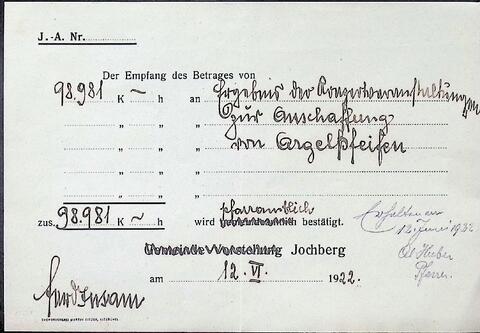 J.-A. Nr.
Der Empfang des Betrages von
98.981 K ~ h an Ergebnis der Konzertveranstaltungen
„ „ „ zur Anschaffung
„ „ „ von Orgelpfeifen
„ „ „
„ „ „
zus. 98.981 K ~ h wird pfarramtlich bestätigt.
Erhalten am
12 Juni 1922
Gemeinde-Vorstehung Jochberg
Huber
Pfarrer.
am 12. VI. 1922.